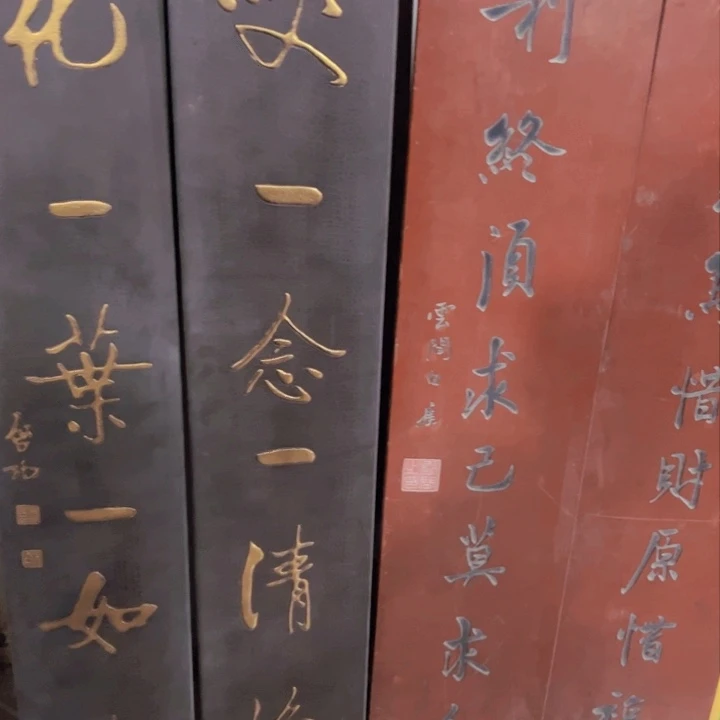 惜財原惜
利終須求己莫求
雲間白蕉
一念一清
花一葉一如
啓功